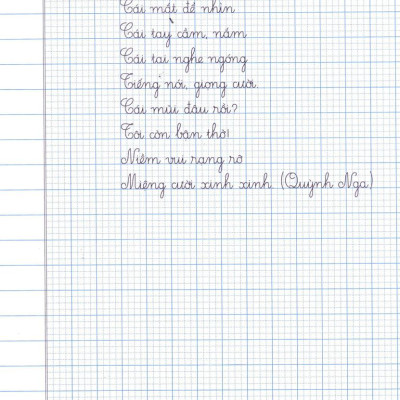 Cái mắt để nhìn
Cái tay cầm, nắm
Cái tai nghe ngóng
Tiếng nói, giọng cười.
Cái mũi đâu rồi?
Tôi còn bận thở!
Niềm vui rạng rỡ
Miệng cười xinh xinh. (Quỳnh Nga)